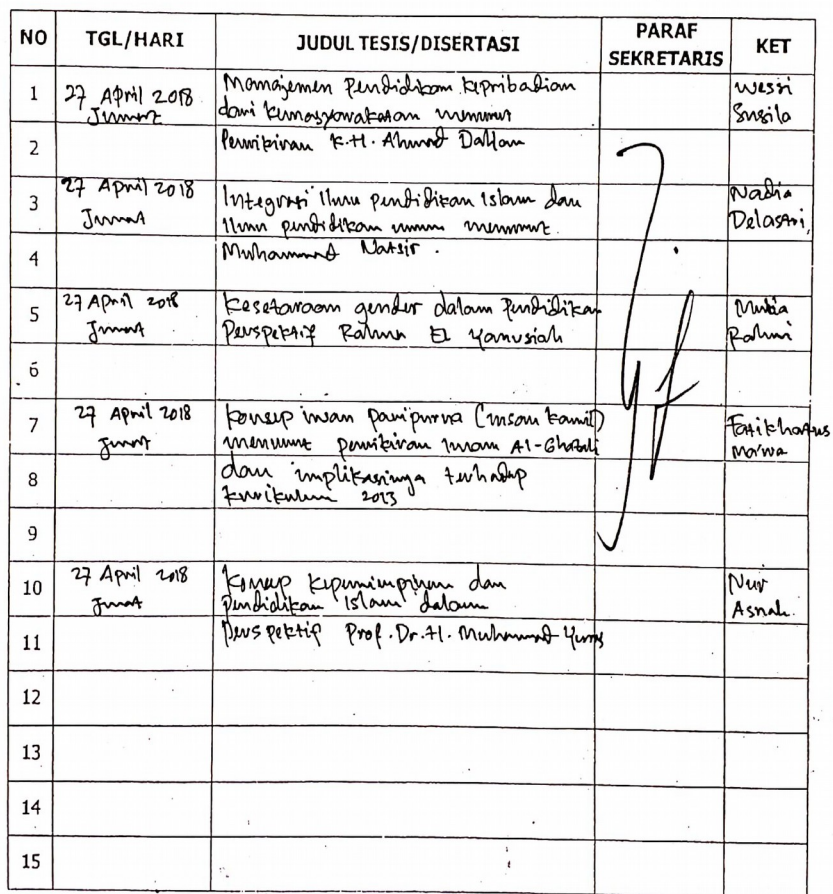 NO TGL/HARI JUDUL TESIS/DISERTASI PARAF SEKRETARIS KET
1 27 April 2018 Jumat Manajemen Pendidikan Kepribadian dan Kemasyarakatan menurut Wessi Susila
2 Pemikiran K.H. Ahmad Dahlan
3 27 April 2018 Jumat Integrasi Ilmu pendidikan Islam dan Ilmu pendidikan umum menurut Nadia Delasari,
4 Muhammad Natsir.
5 27 April 2018 Jumat Kesetaraan gender dalam Pendidikan Perspektif Rahma El Yanusiah Mutia Rahmi
6
7 27 April 2018 Jumat Konsep insan paripurna (insan kamil) menurut pemikiran Imam Al-Ghazali Fatikhatus Ma'wa
8 dan implikasinya terhadap kurikulum 2013
9
10 27 April 2018 Jumat Konsep kepemimpinan dan Pendidikan Islam dalam Nur Asnah.
11 Perspektif Prof. Dr. H. Muhammad Yunus
12
13
14
15